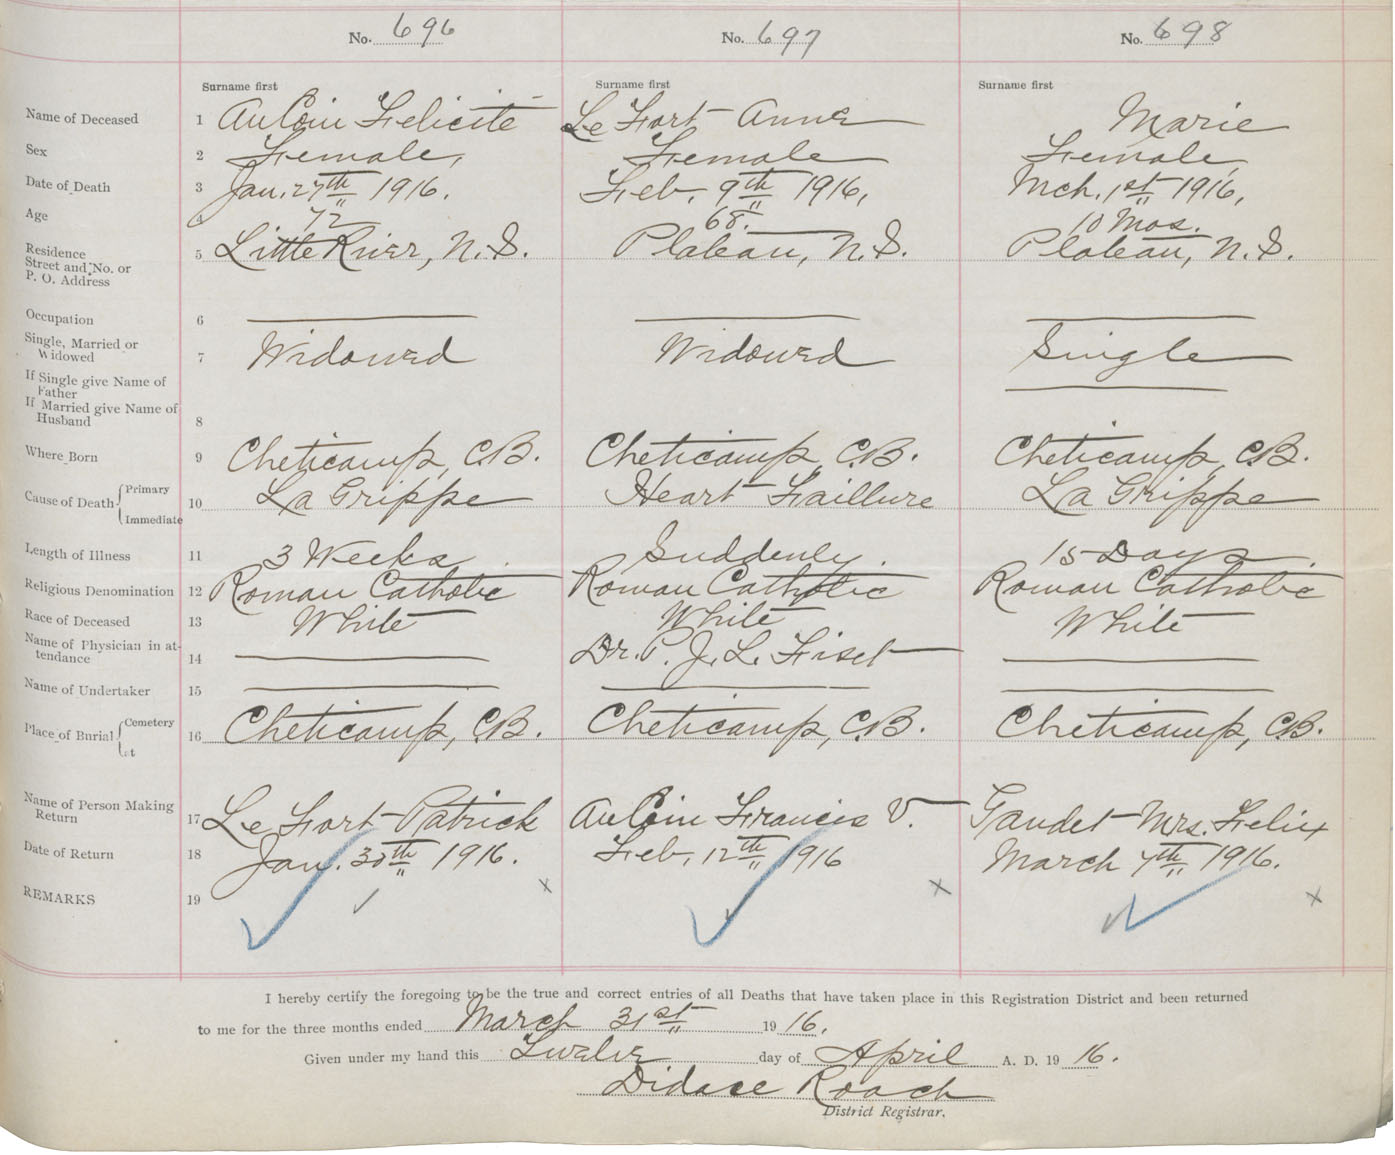 No. 696 No. 697 No. 698
Surname first Surname first Surname first
Name of Deceased 1 AuCoin Felicité Le Fort Anne Marie
Sex 2 Female, Female Female,
Date of Death 3 Jan. 27th 1916. Feb. 9th 1916, Mch. 1st 1916,
Age 4 72 68. 10 Mos.
Residence Street and No. or P. O. Address 5 Little River, N.S. Plateau, N.S. Plateau, N.S.
Occupation 6
Single, Married or Widowed 7 Widowed Widowed Single
If Single give Name of Father
If Married give Name of Husband 8
Where Born 9 Cheticamp, C.B. Cheticamp, C.B. Cheticamp, C.B.
Cause of Death Primary Immediate 10 La Grippe Heart Faillure La Grippe
Length of Illness 11 3 Weeks Suddenly. 15 Days
Religious Denomination 12 Roman Catholic Roman Catholic Roman Catholic
Race of Deceased 13 White White White
Name of Physician in attendance 14 Dr. P. J. L. Fiset
Name of Undertaker 15
Place of Burial Cemetery Lot 16 Cheticamp, C.B. Cheticamp, C.B. Cheticamp, C.B.
Name of Person Making Return 17 Le Fort Patrick AuCoin Francis V. Gaudet Mrs. Felix
Date of Return 18 Jan. 30th 1916. Feb, 12th 1916 March 7th 1916.
REMARKS 19 x x x
I hereby certify the foregoing to be the true and correct entries of all Deaths that have taken place in this Registration District and been returned
to me for the three months ended March 31st 1916.
Given under my hand this Twelve day of April A. D. 1916.
Didace Roach
District Registrar.